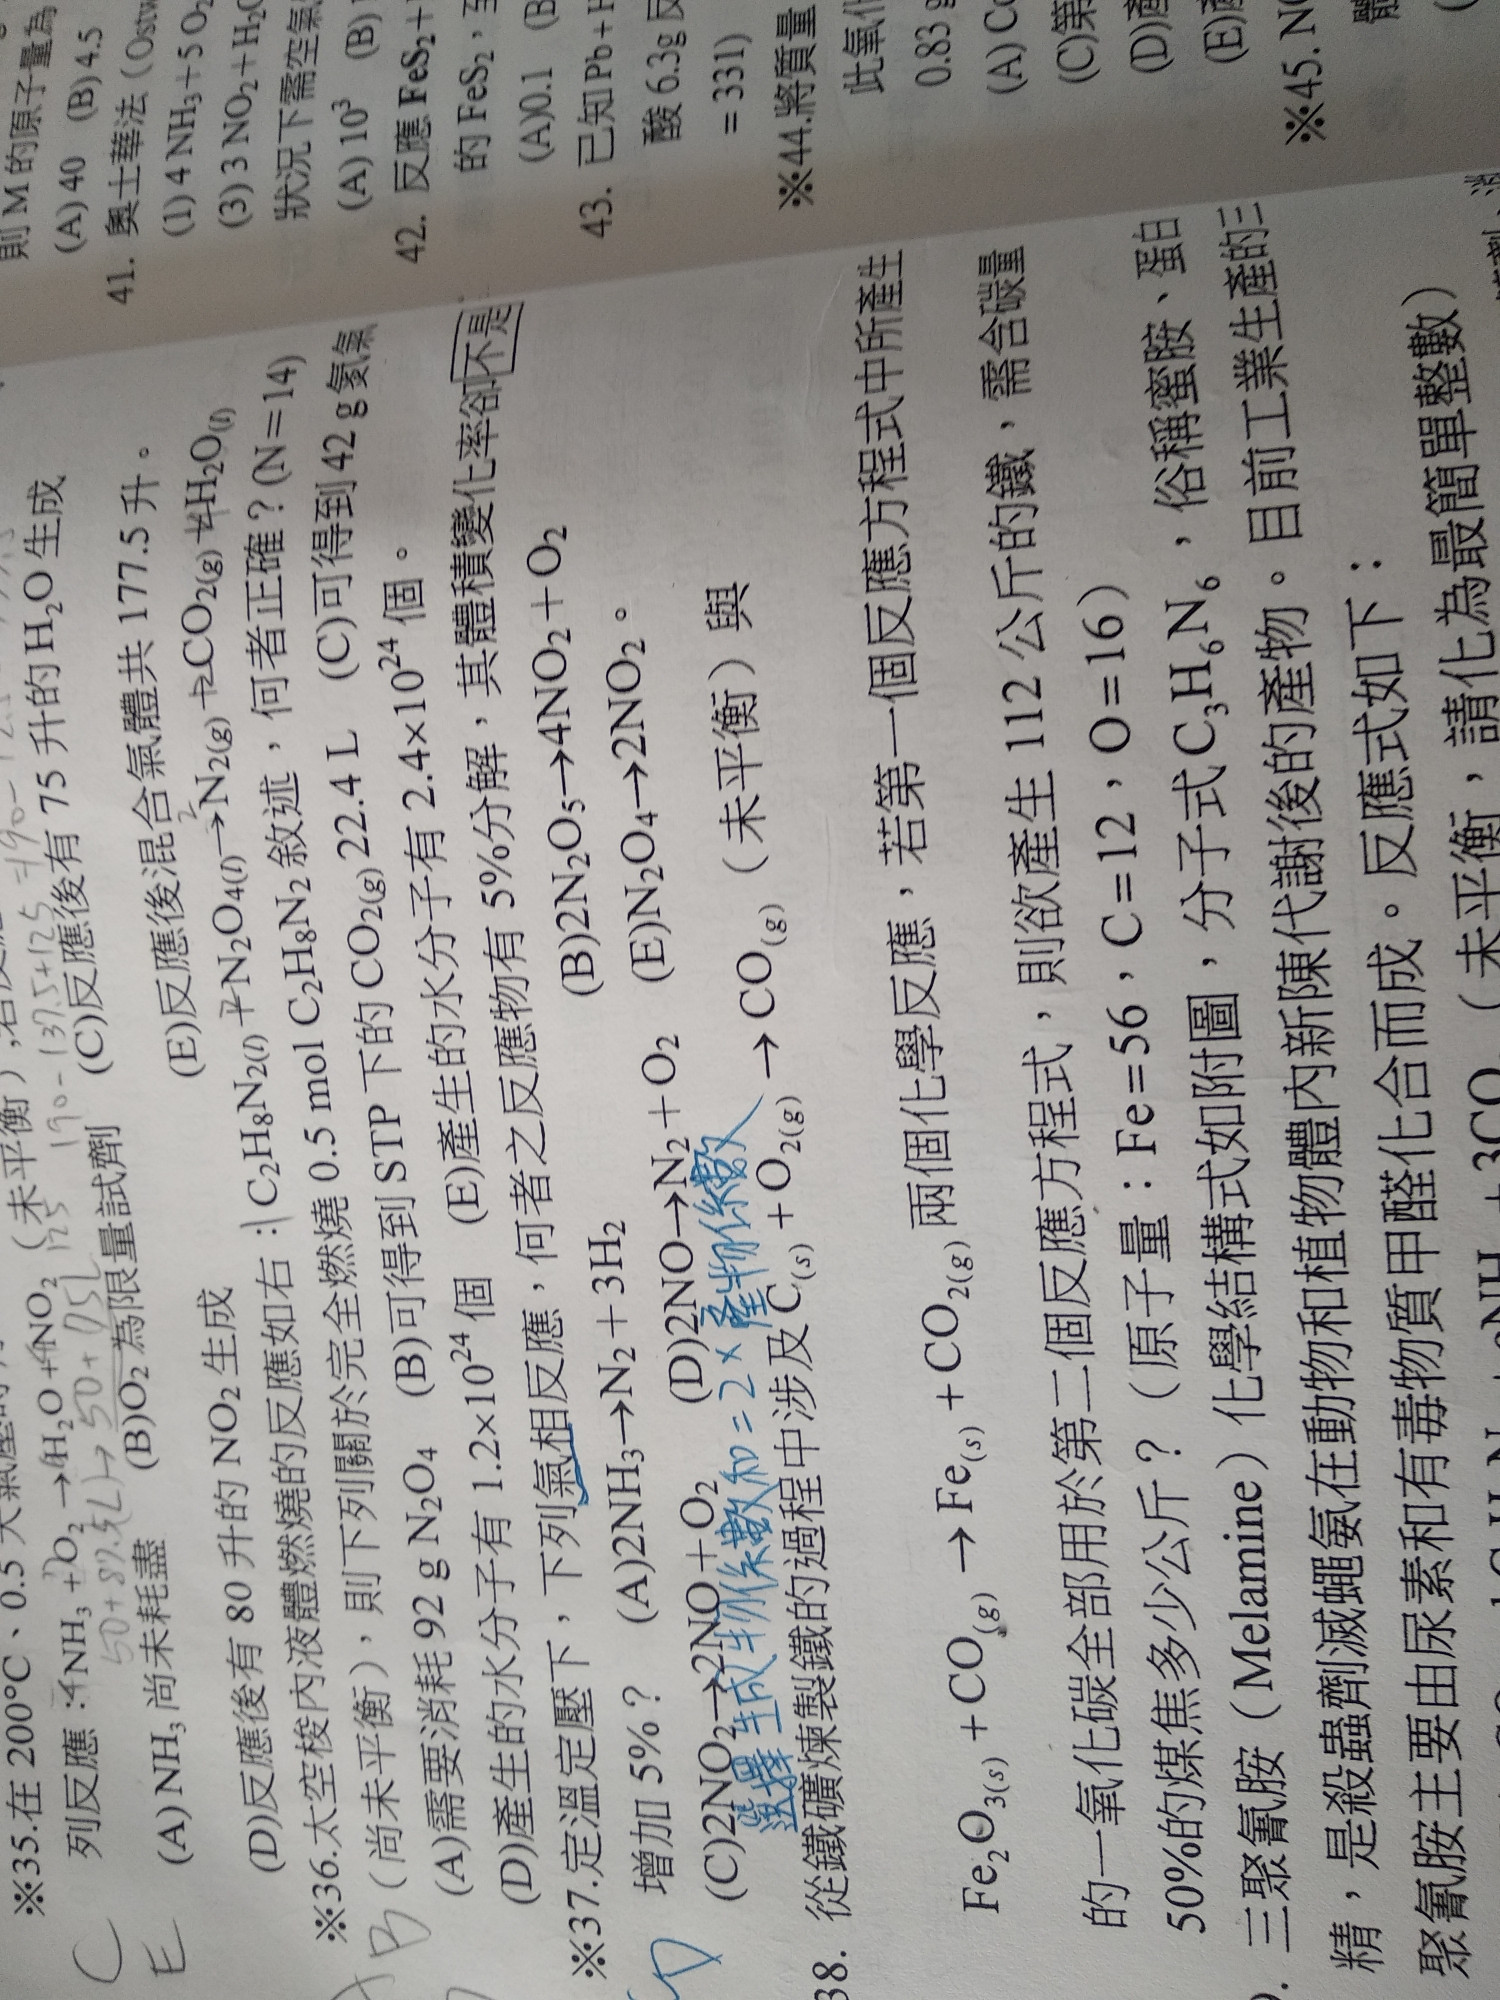 ※35.在 200°C、0.5 大氣壓
列反應：4NH₃ + 7O₂ → 6H₂O + 4NO₂（未平衡）
(A) NH₃ 尚未耗盡 (B)O₂ 為限量試劑 (C)反應後有 75 升的 H₂O 生成
(D)反應後有 80 升的 NO₂ 生成 (E)反應後混合氣體共 177.5 升。
※36.太空梭內液體燃燒的反應如右：C₂H₈N₂(l) + N₂O₄(l)→N₂(g) + CO₂(g) + H₂O(l)
（尚未平衡），則下列關於完全燃燒 0.5 mol C₂H₈N₂ 敘述，何者正確？(N＝14)
(A)需要消耗 92 g N₂O₄ (B)可得到 STP 下的 CO₂(g) 22.4 L (C)可得到 42 g 氮氣
(D)產生的水分子有 1.2×10²⁴ 個 (E)產生的水分子有 2.4×10²⁴ 個。
※37.定溫定壓下，下列氣相反應，何者之反應物有 5%分解，其體積變化率卻不是
增加 5%？ (A)2NH₃→N₂＋3H₂ (B)2N₂O₅→4NO₂＋O₂
(C)2NO₂→2NO＋O₂ (D)2NO→N₂＋O₂ (E)N₂O₄→2NO₂。
選擇生成物係數和=2×產物係數
38. 從鐵礦煉製鐵的過程中涉及 C(s) + O₂(g) → CO(g) （未平衡）與
Fe₂O₃(s) + CO(g) → Fe(s) + CO₂(g) 兩個化學反應，若第一個反應方程式中所產生
的一氧化碳全部用於第二個反應方程式，則欲產生 112 公斤的鐵，需含碳量
50%的煤焦多少公斤？（原子量：Fe＝56，C＝12，O＝16）
三聚氰胺（Melamine）化學結構式如附圖，分子式 C₃H₆N₆，俗稱蜜胺、蛋白
精，是殺蟲劑滅蠅氨在動物和植物體內新陳代謝後的產物。目前工業生產的三
聚氰胺主要由尿素和有毒物質甲醛化合而成。反應式如下：
（未平衡，請化為最簡單整數）
則 M 的原子量為
(A) 40 (B) 4.5
41. 奧士華法（Ostw
(1) 4 NH₃＋5 O₂
(3) 3 NO₂＋H₂O
狀況下需空氣
(A) 10³ (B)
42. 反應 FeS₂＋
的 FeS₂，至
(A)0.1 (B
43. 已知 Pb＋H
酸 6.3g 反
＝331)
※44.將質量
此氧化
0.83 g
(A) Co
(C)第
(D)
(E)
※45. NO